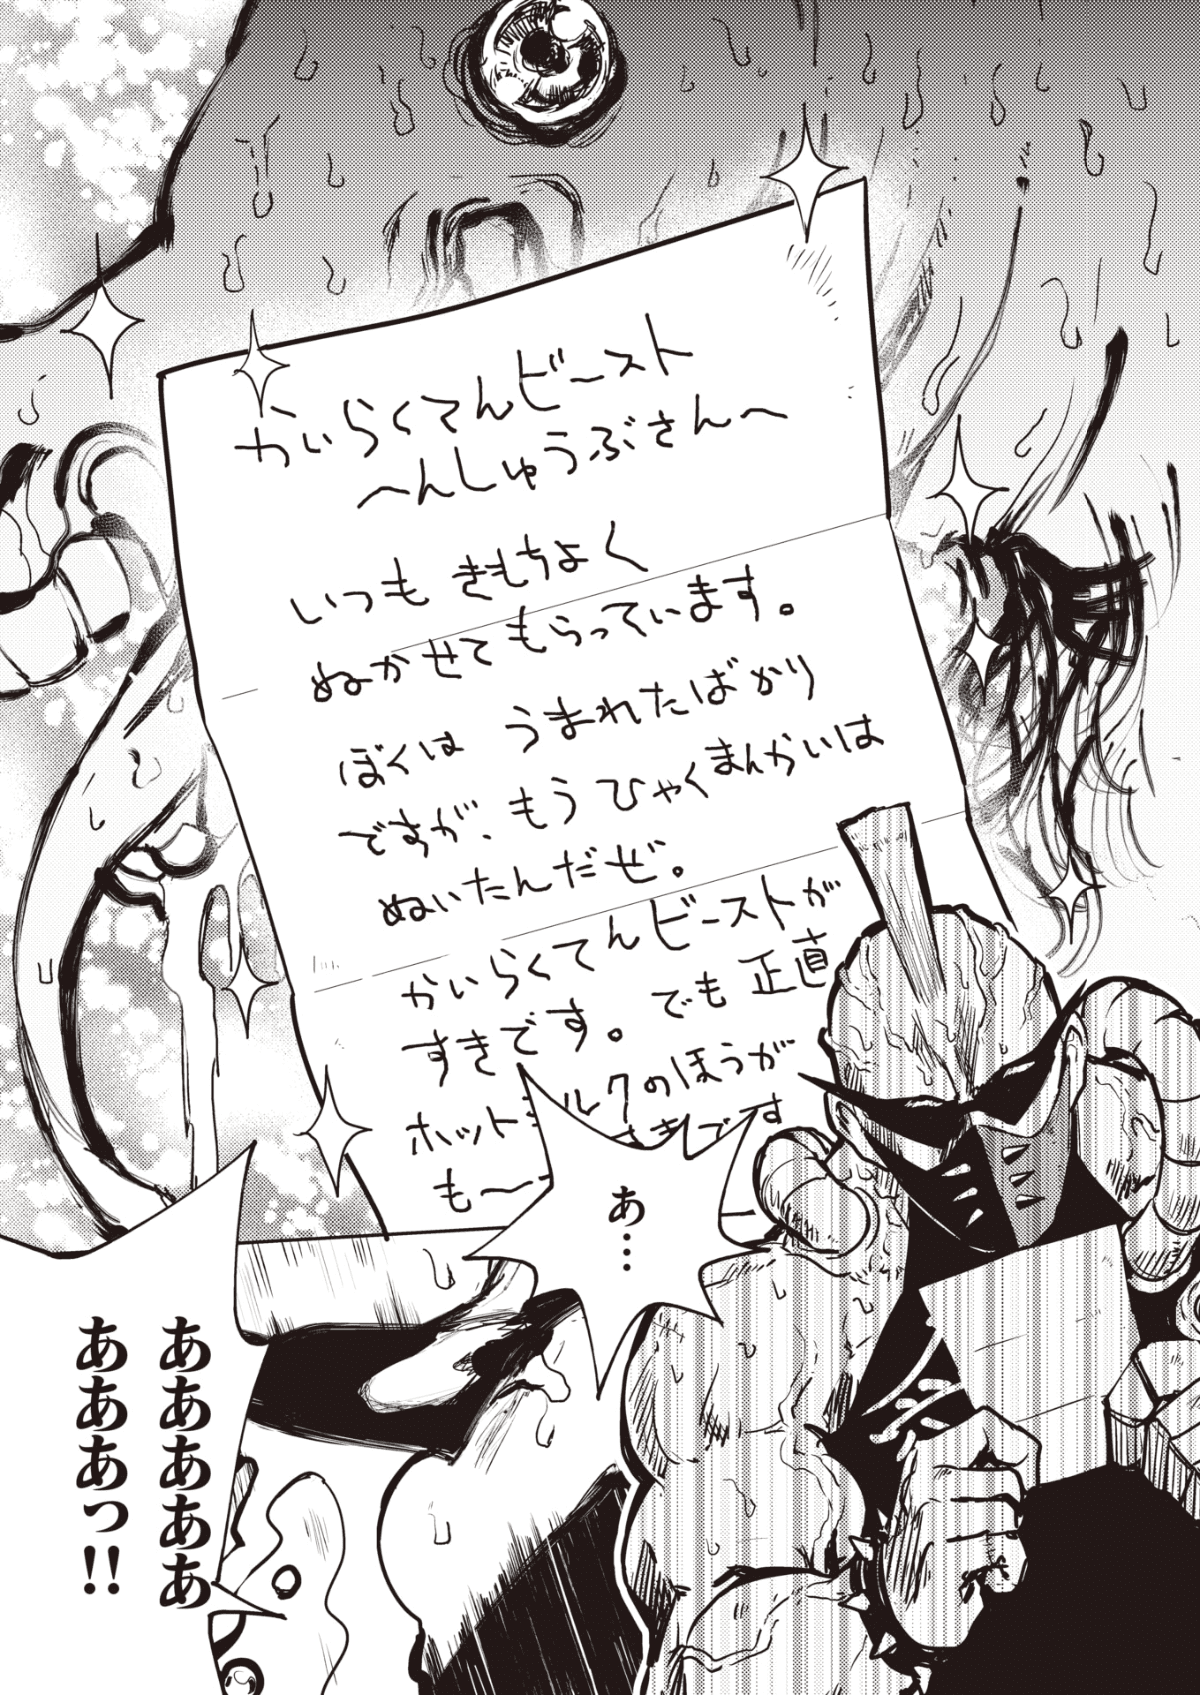 かいらくてんビースト
へんしゅうぶさんへ
いつも きもちよく
ぬかせてもらっています。
ぼくは うまれたばかり
ですが、もうひゃくまんかいは
ぬいたんだぜ。
かいらくてんビーストが
すきです。でも正直
ホットミルクのほうが
すきです
も〜
あ…
あああああ
ああああっ!!